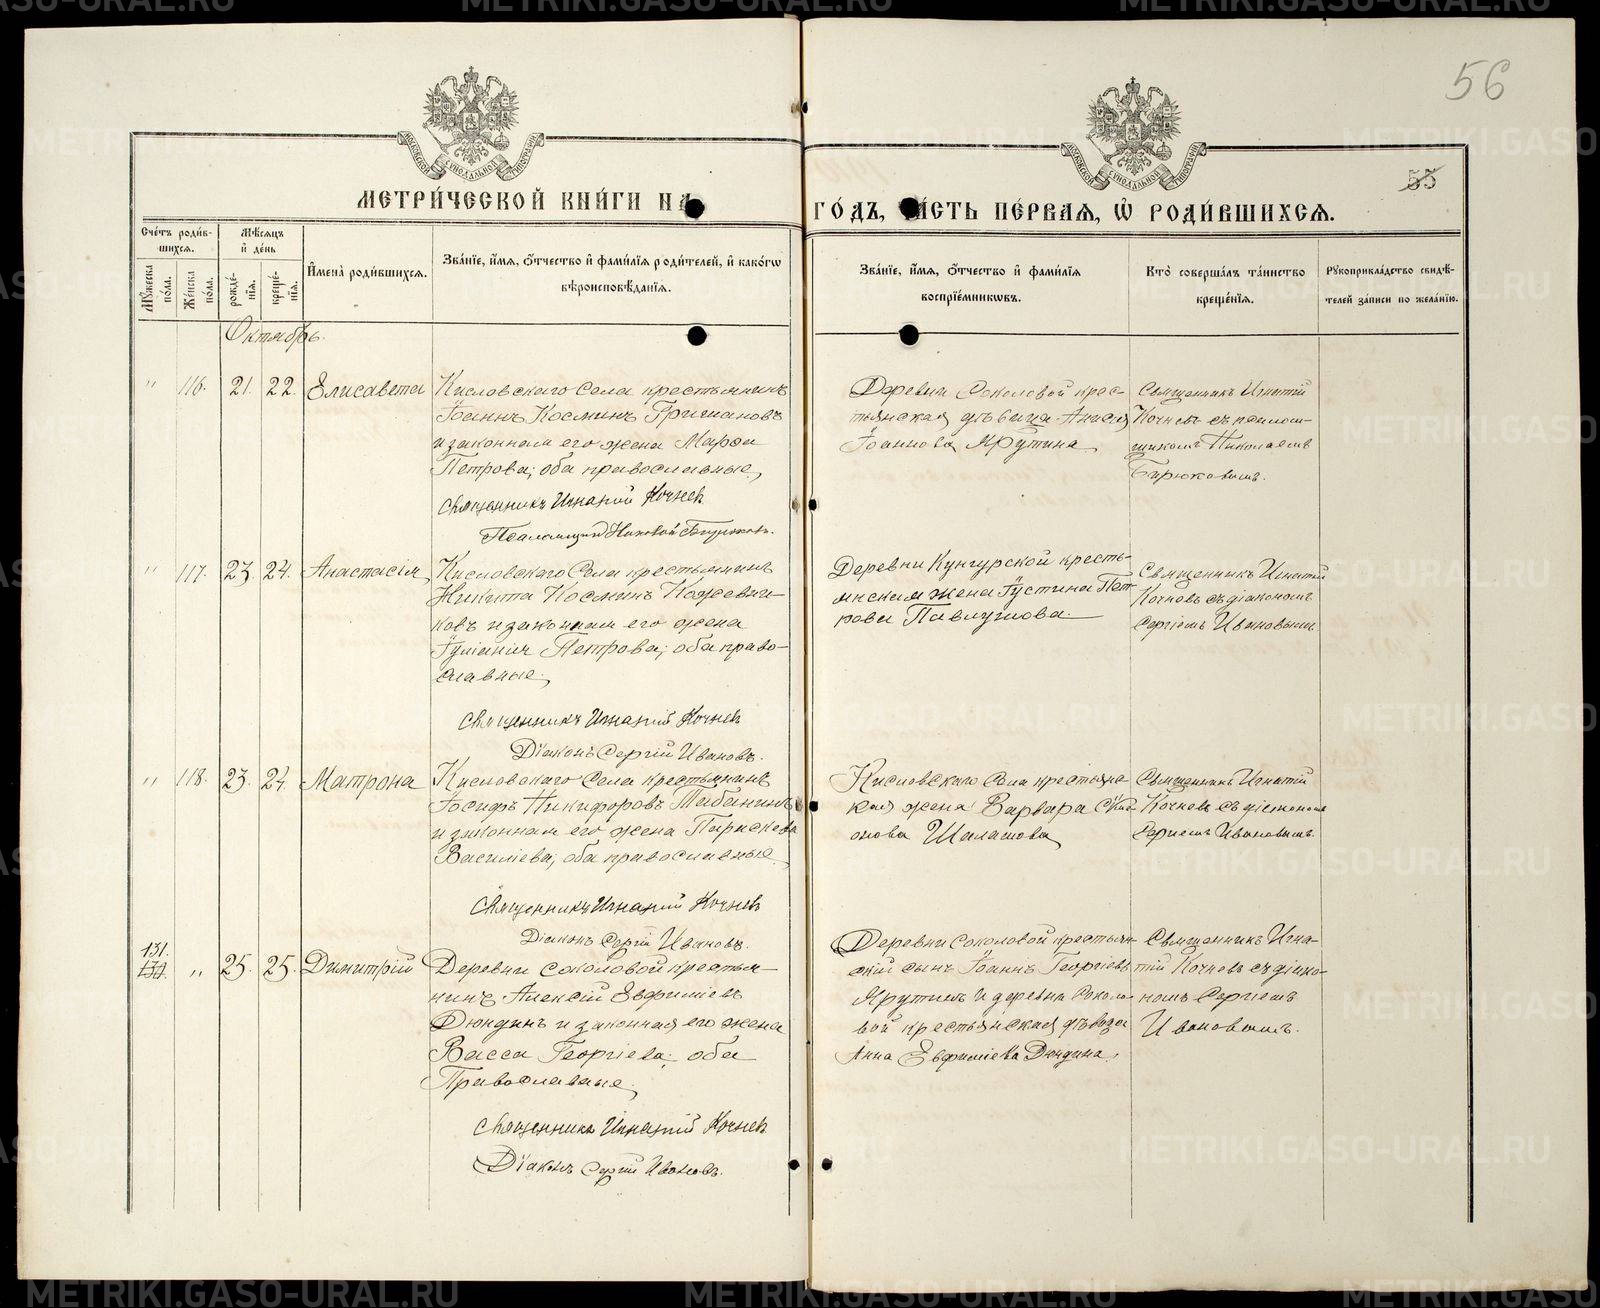 56
55
МЕТРИ́ЧЕСКОЙ КНИ́ГИ НА
ГО́ДЪ, ЧА́СТЬ ПЕ́РВАЯ, Ѡ҆ РОДИ́ВШИХСЯ.
Сче́тъ роди́в-
шихся.
Мѣ́сяцъ
и҆ де́нь
Му́жеска
по́ла.
Же́нска
по́ла.
рожде́-
нїя.
креще́-
нїя.
И҆мена̀ роди́вшихся.
Зва́нїе, и҆́мя, ѻ҆́тчество и҆ фами́лїя роди́телей, и҆ како́гѡ
вѣроисповѣ́данїя.
Зва́нїе, и҆́мя, ѻ҆́тчество и҆ фами́лїя
воспрїе́мниковъ.
Кто̀ соверша́лъ та́инство
креще́нїя.
Рꙋкоприкла́дство свидѣ́-
телей за́писи по жела́нїю.
Октябрь.
" 116. 21. 22. Елисавета
Кисловскаго Села крестьянинъ
Іоаннъ Косминъ Гришановъ
и законная его жена Марфа
Петрова; оба православные,
Священникъ Игнатій Кочневъ
Псаломщикъ Николай Бирюковъ.
Деревни Соколовой крес-
тьянская дѣвица Анисія
Іоаннова Ярутина
Священникъ Игнатій
Кочневъ съ псалом-
щикомъ Николаемъ
Бирюковымъ.
" 117. 23. 24. Анастасія
Кисловскаго Села крестьянинъ
Никита Косминъ Кожевни-
ковъ и законная его жена
Іуліанія Петрова; оба право-
славные,
Священникъ Игнатій Кочневъ
Діаконъ Сергій Ивановъ.
Деревни Кунгурской кресть-
янская жена Іустина Пет-
рова Павлушова.
Священникъ Игнатій
Кочневъ съ діакономъ
Сергіемъ Ивановымъ
" 118. 23. 24. Матрона
Кисловскаго Села крестьянинъ
Іосифъ Никифоровъ Табанинъ
и законная его жена Параскева
Василіева; оба православные,
Священникъ Игнатій Кочневъ
Діаконъ Сергій Ивановъ.
Кисловскаго Села крестьянс-
кая жена Варвара
онова Шалашова
Священникъ Игнатій
Кочневъ съ діакономъ
Сергіемъ Ивановымъ.
131.
" 25. 25. Димитрій
Деревни Соколовой крестья-
нинъ Алексій Евфиміевъ
Дюндинъ и законная его жена
Васса Георгіева; оба
Православные,
Священникъ Игнатій Кочневъ
Діаконъ Сергій Ивановъ.
Деревни Соколовой крестьян-
скій сынъ Іоаннъ Георгіевъ
Ярутинъ и деревни Соколо-
вой крестьянская дѣвица
Анна Евфиміева Дюндина,
Священникъ Игна-
тій Кочневъ съ діако-
номъ Сергіемъ
Ивановымъ.
METRIKI.GASO-URAL.RU